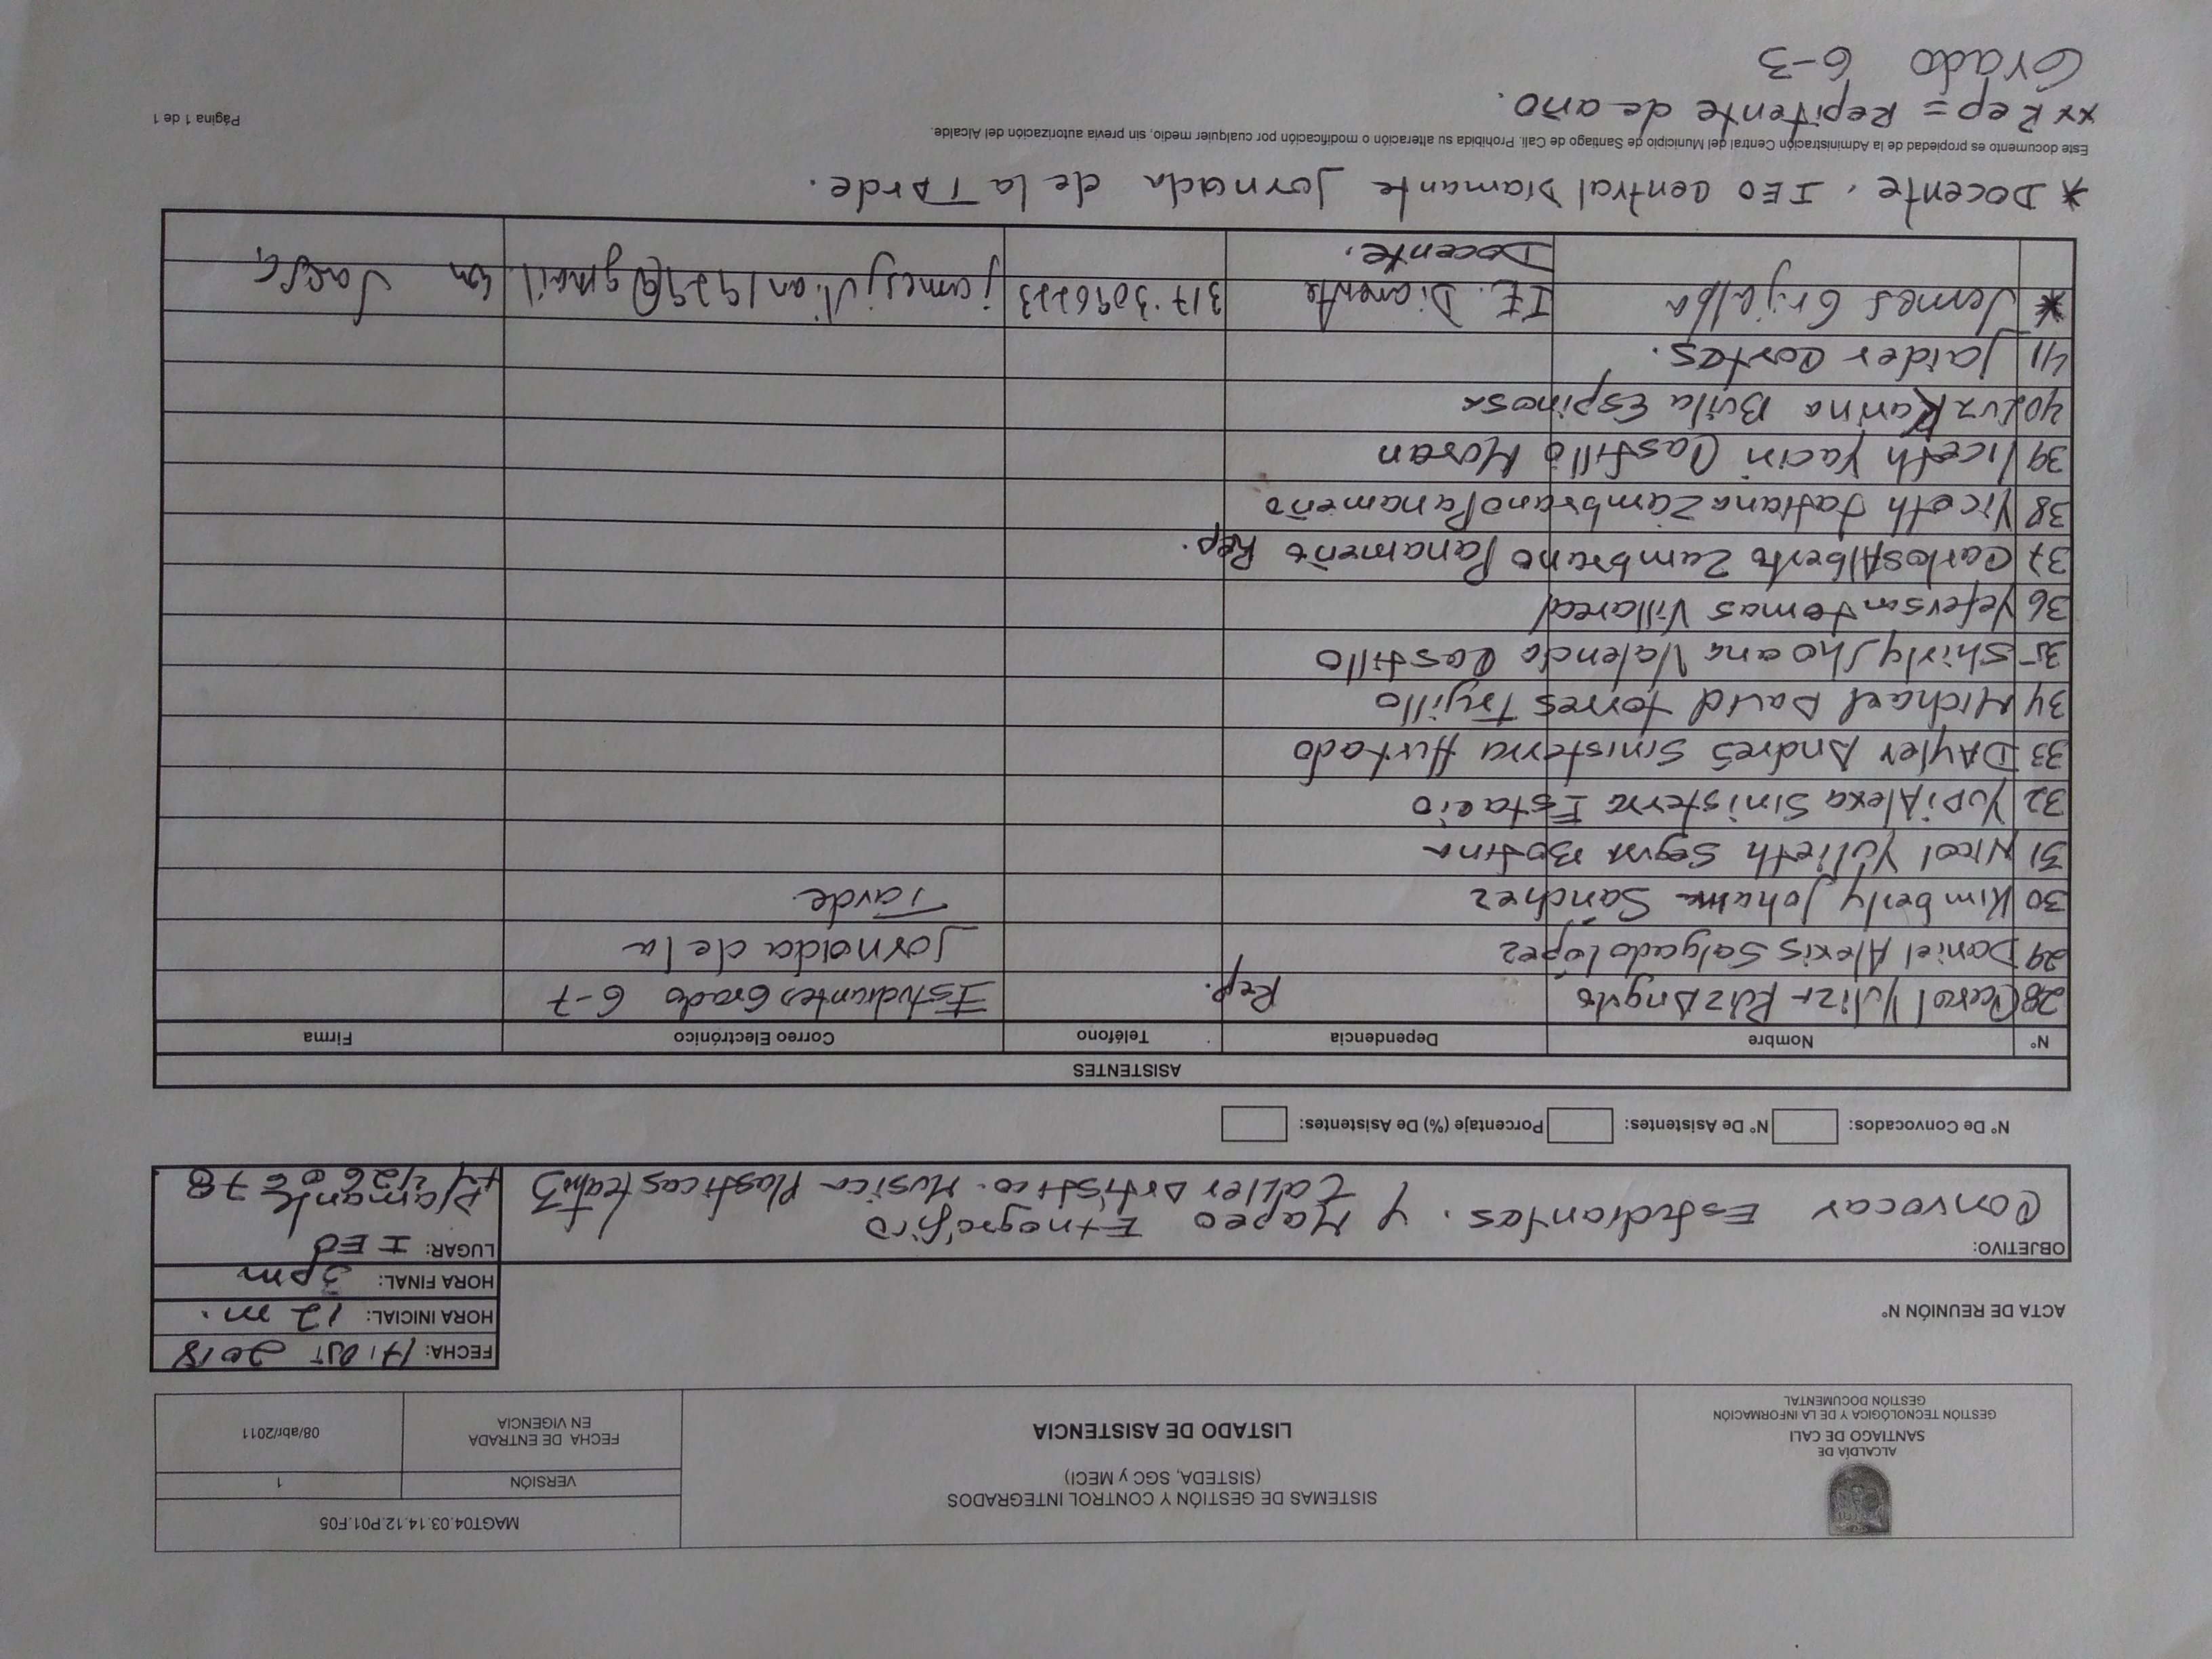 ALCALDÍA DE
SANTIAGO DE CALI
GESTIÓN TECNOLÓGICA Y DE LA INFORMACIÓN
GESTIÓN DOCUMENTAL
SISTEMAS DE GESTIÓN Y CONTROL INTEGRADOS
(SISTEDA, SGC y MECI)
LISTADO DE ASISTENCIA
MAGT04.03.14.12.P01.F05
VERSIÓN 1
FECHA DE ENTRADA
EN VIGENCIA
08/abr/2011
FECHA: 17 2018
HORA INICIAL: 12 m.
HORA FINAL: 3pm
ACTA DE REUNIÓN N°
LUGAR: IEO
Diamante
4260678
OBJETIVO:
Convocar Estudiantes. y Mapeo Etnográfico
taller Artístico. Musica Plasticas teatro
N° De Convocados: N° De Asistentes: Porcentaje (%) De Asistentes:
ASISTENTES
N° Nombre Dependencia Teléfono Correo Electrónico Firma
28 Carol Yuliza Ruiz Angulo Rep. Estudiantes Grado 6-7
29 Daniel Alexis Salgado López Jornada de la
30 Kimberly Johanna Sánchez Tarde.
31 Nicol Yulieth Segura Botina
32 Yudi Alexa Sinisterra Estacio
33 DAyler Andrés Sinisterra Hurtado
34 Michael David torres Trujillo
35 Shirly Jhoana Valencia Castillo
36 Yeferson tomas Villareal
37 Carlos Alberto Zambrano Panameño Rep.
38 Yiceth tatiana Zambrano Panameño
39 Yiceth Yaciri Castillo Moran
40 Luz Karina Buila Espinosa
41 Jaider Cortes.
* James Grijalba IE. Diamante 317.3096223 jamesjulian1929@gmail.com
Docente.
* Docente. IEO Central Diamante Jornada de la TArde.
Este documento es propiedad de la Administración Central del Municipio de Santiago de Cali. Prohibida su alteración o modificación por cualquier medio, sin previa autorización del Alcalde.
Página 1 de 1
xx Rep = Repitente de año.
Grado 6-3